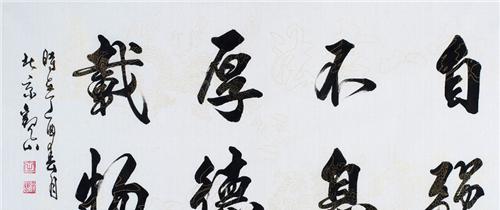 自强
不息
厚德
载物
时在丁酉春月
北京